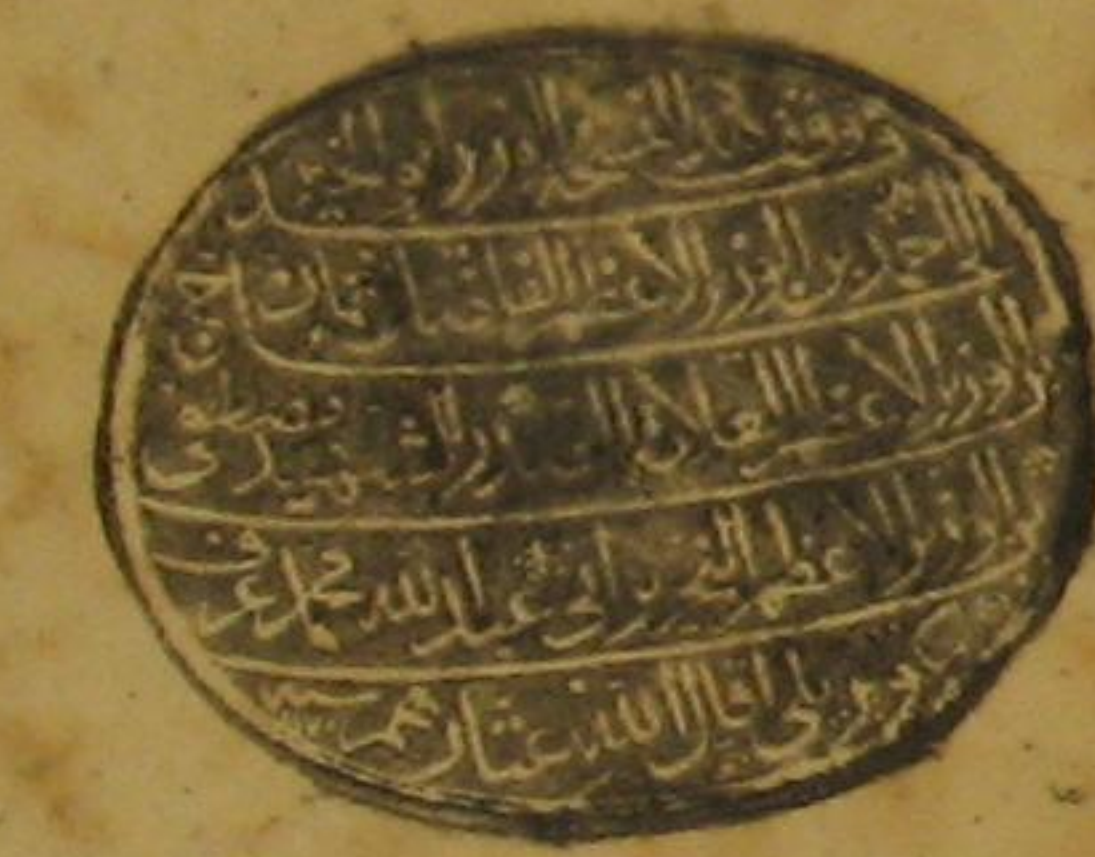 قد وقف هذه النسخة الوزير ابو الخير
الحاج احمد بن الوزير الاعظم الفاضل نعمان بن
الوزير الاعظم العلامة الشهيد مصطفى
بن الوزير الاعظم النحرير ابي عبد الله محمد عرف
بكوبريلي اقال الله عثارهم